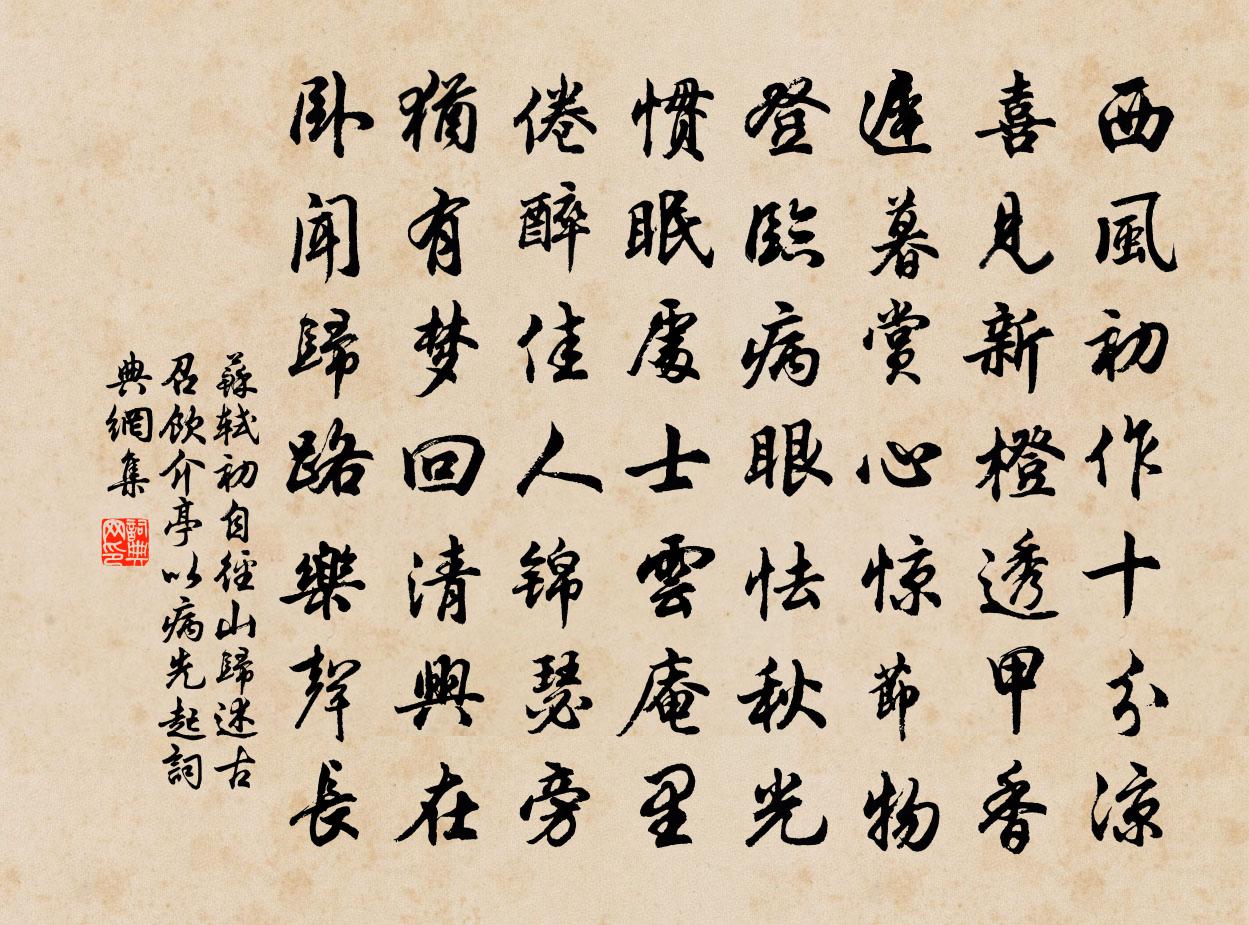 西風初作十分涼
喜見新橙透甲香
遲暮賞心惊節物
登臨病眼怯秋光
慣眠處士雲庵里
倦醉佳人锦瑟旁
猶有梦回清興在
卧聞歸路樂聲長
蘇軾初自徑山歸述古
召飲介亭以病先起詞
典網集
詞典网印